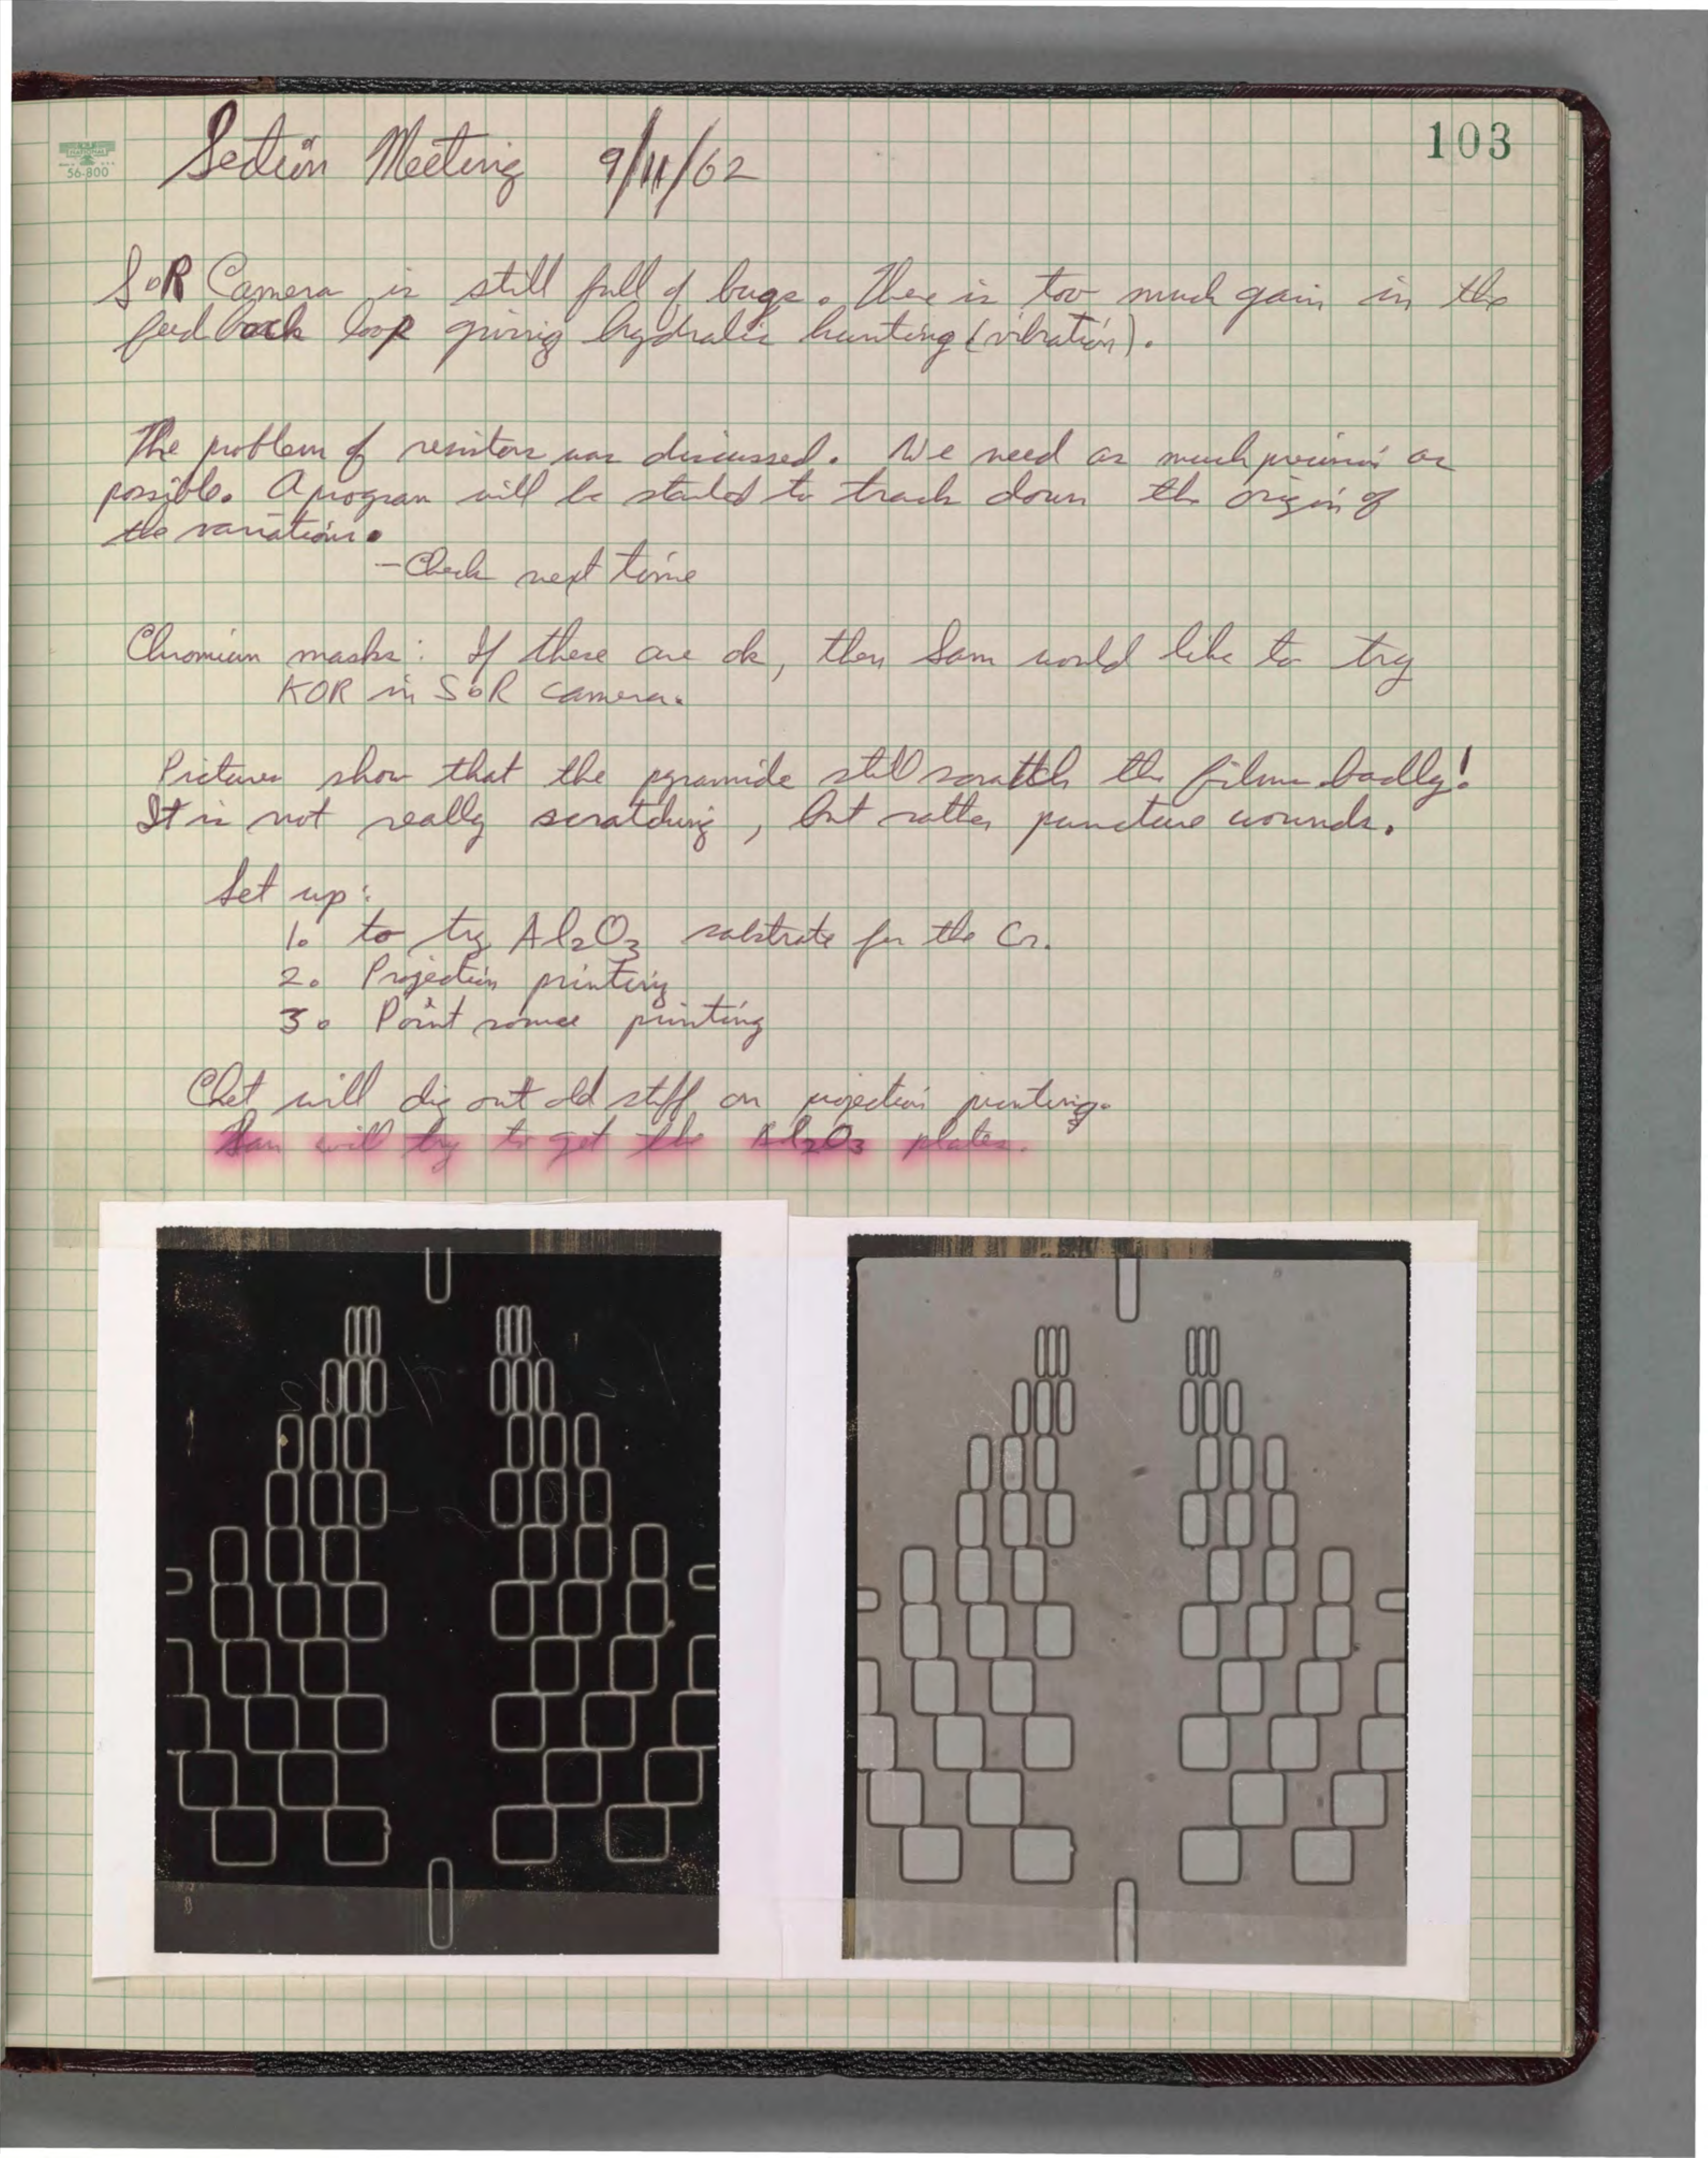 103
56-800
Section Meeting 9/11/62
S&R Camera is still full of bugs. There is too much gain in the
feedback loop giving hydralic hunting (vibration).
The problem of resistors was discussed. We need as much precision as
possible. A program will be started to track down the origin of
the variations.
- Check next time
Chromium masks: If these are ok, then Sam would like to try
KOR in S&R camera.
Pictures show that the pyramids still scratch the films badly!
It is not really scratching, but rather puncture wounds.
Set up:
1. to try Al₂O₃ substrate for the Cr.
2. Projection printing
3. Point source printing
Chet will dig out old stuff on projection printing.
Sam will try to get the Al₂O₃ plates.